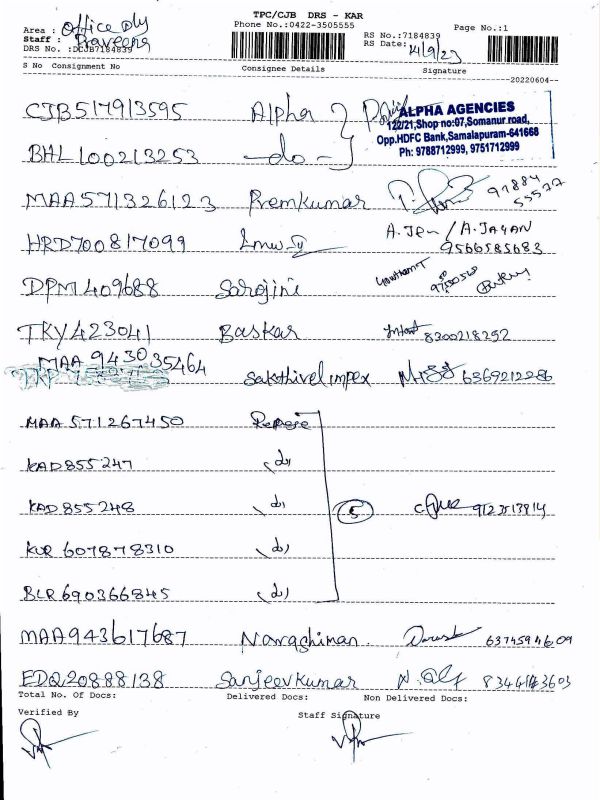 TPC/CJB DRS - KAR
Phone No.:0422-3505555
Page No.:1
Area : Office Dly
Staff : Praveena
DRS No. :DCJB7184839
RS No.:7184839
RS Date: 4/9/23
S No Consignment No Consignee Details Signature
20220604
CJB517913595 Alpha
ALPHA AGENCIES
122/21,Shop no:07,Somanur road,
Opp.HDFC Bank,Samalapuram-641668
Ph: 9788712999, 9751712999
BHL100213253 -do-
MAA571326123 Premkumar 97884 55577
HRD700817099 A.Jen/A.JAYAN
9566585683
DPM409688 Sarojini
TKY423041 Baskar 8300218252
MAA 943035464 Sakthivel impex 6369212286
MAA571267450
KAD855247
KAD855248 5 9123513814
KUR607878310
BLR690366845
MAA943617687 Narashiman. 6374594609
EDQ20888138 Sanjeevkumar 8344143603
Total No. Of Docs: Delivered Docs: Non Delivered Docs:
Verified By Staff Signature